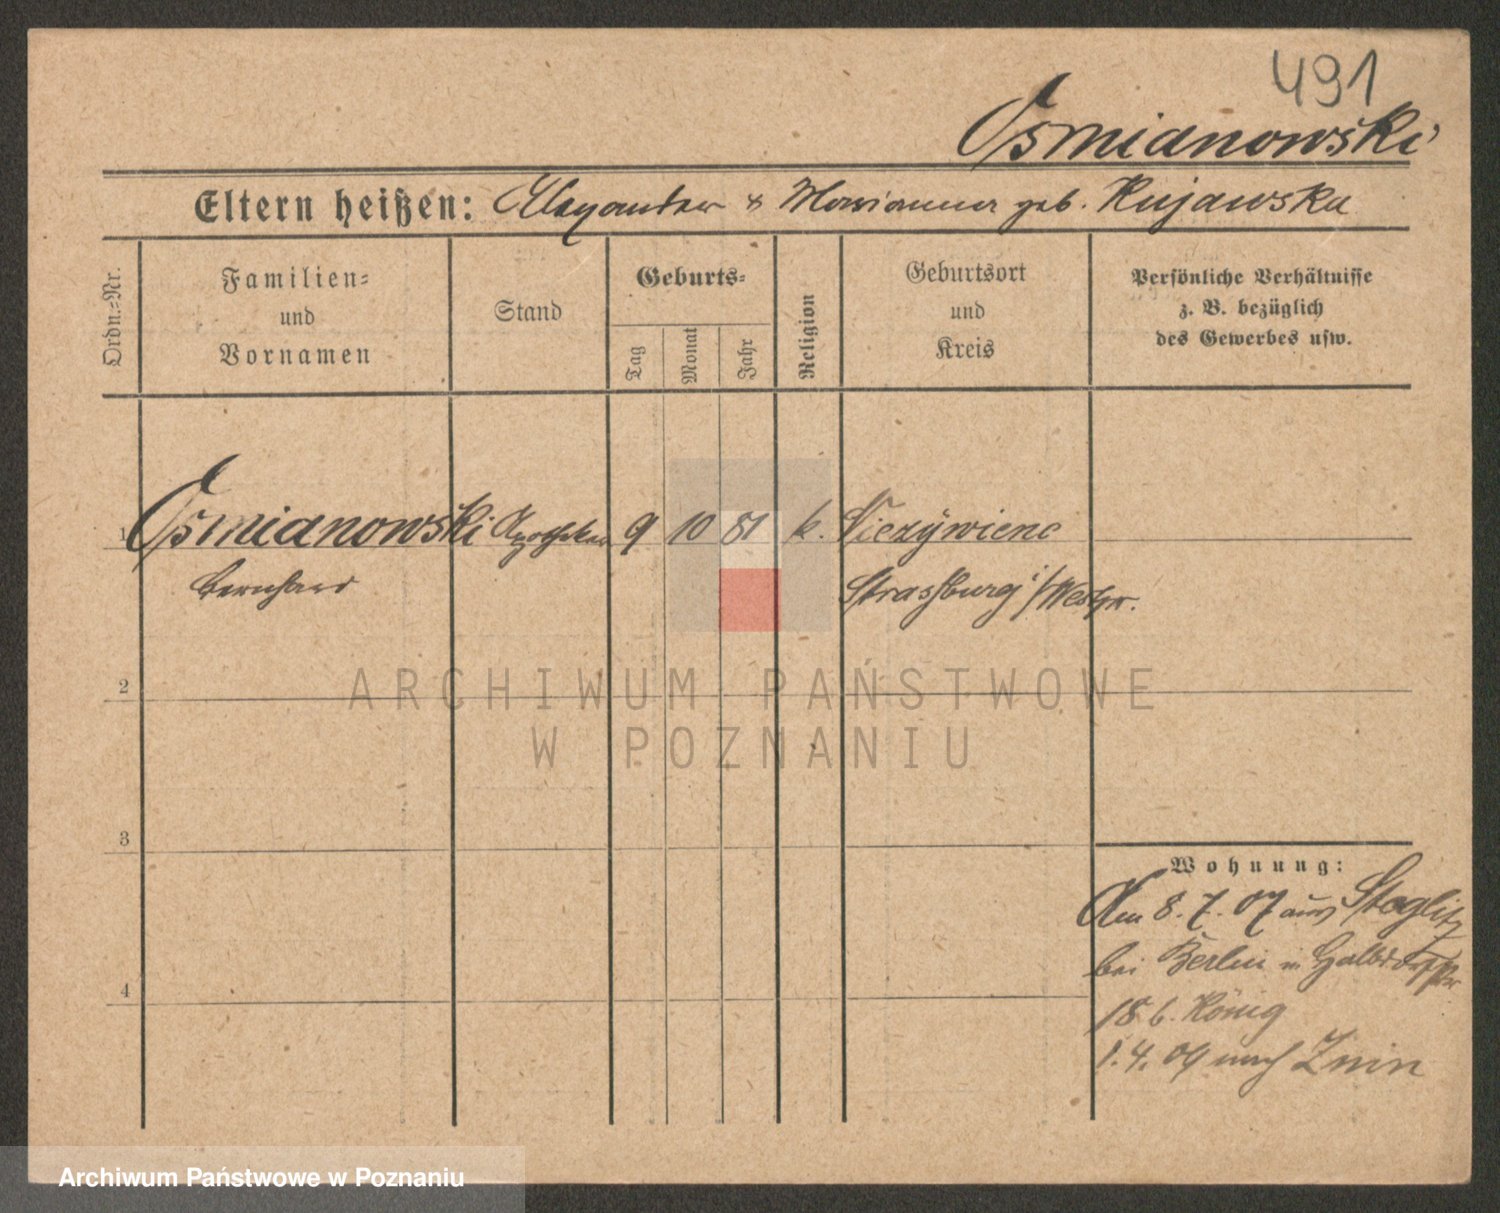 491
Osmianowski
Eltern heißen: Alexander & Marianna geb. Kujawska
Ordn.-Nr.
Familien-
und
Vornamen
Stand
Geburts-
Tag
Monat
Jahr
Religion
Geburtsort
und
Kreis
Persönliche Verhältnisse
z. B. bezüglich
des Gewerbes usw.
1 Osmianowski Apotheker 9 10 81 k.
Bernhard Strassburg i/Westpr.
2
ARCHIWUM PAŃSTWOWE
W POZNANIU
3
Wohnung:
Am 8. 7. 07 aus Steglitz
bei Berlin n Halbdorfstr
18 b. König
4
1. 4. 09 nach Znin
Archiwum Państwowe w Poznaniu